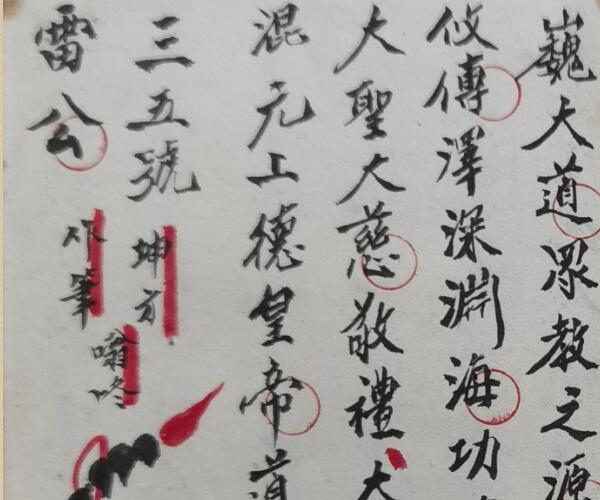 巍大道眾教之源
攸傳澤深淵海功
大聖大慈敬禮大
混元上德皇帝道
三五號
坤方
雷公
筆
嗡咚